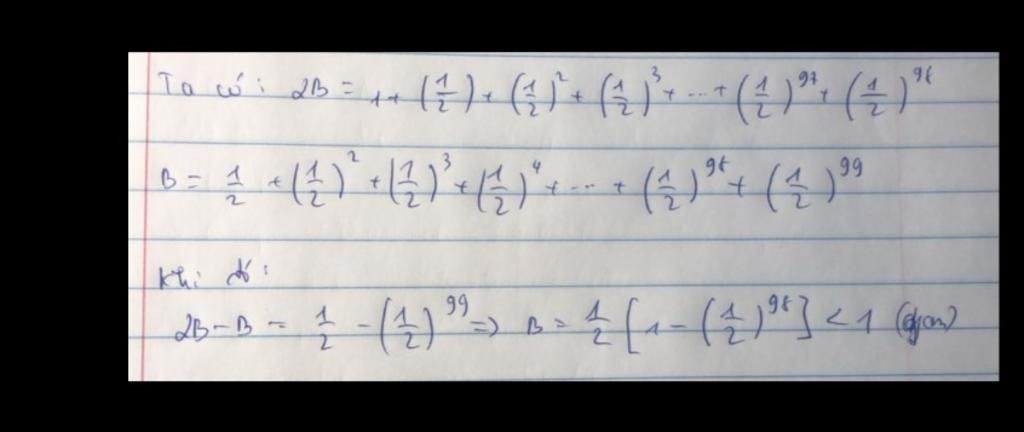 Ta có: 2B = 1 + (1/2) + (1/2)^2 + (1/2)^3 + ... + (1/2)^97 + (1/2)^98
B = 1/2 + (1/2)^2 + (1/2)^3 + (1/2)^4 + ... + (1/2)^98 + (1/2)^99
Khi đó:
2B - B = 1/2 - (1/2)^99 => B = 1/2 [1 - (1/2)^98] < 1 (đpcm)